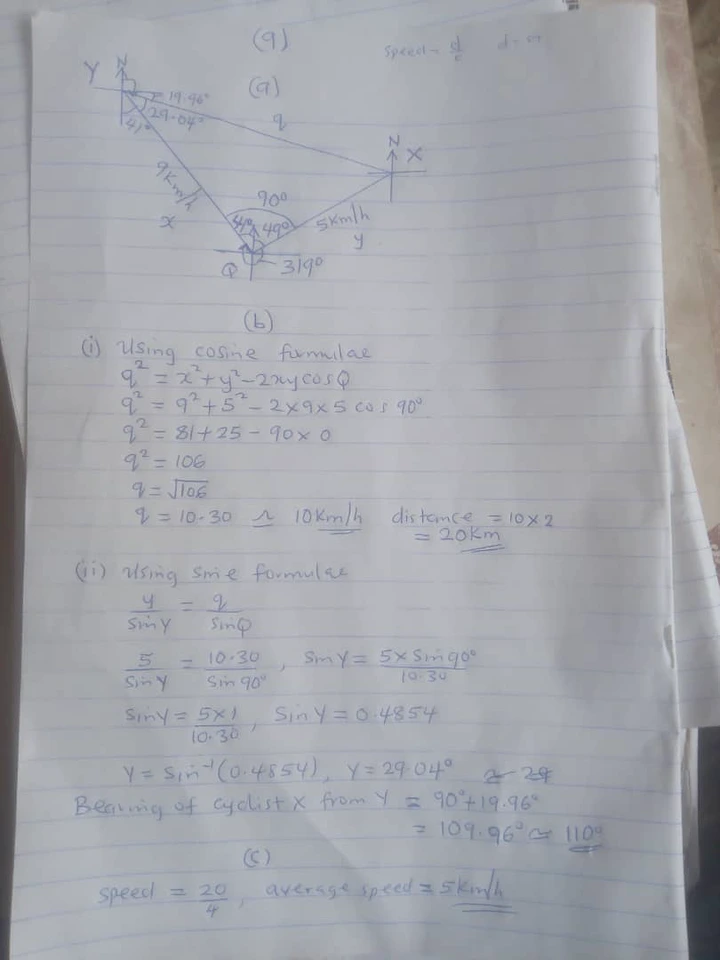 (9)
speed = d
(a)
N
Y
19.96°
29.04°
41°
q
N
X
9km/h
x
90°
41° 49°
5km/h
y
Q
319°
(b)
(i) Using cosine formulae
q² = x² + y² - 2xy cos Q
q² = 9² + 5² - 2 x 9 x 5 cos 90°
q² = 81 + 25 - 90 x 0
q² = 106
q = √106
q = 10.30 ≃ 10km/h distance = 10 x 2
= 20km
(ii) Using sine formulae
y/sin Y = q/sin Q
5/sin Y = 10.30/sin 90°, sin Y = 5 x sin 90°/10.30
sin Y = 5 x 1/10.30, sin Y = 0.4854
Y = sin⁻¹(0.4854), Y = 29.04° ≃ 29
Bearing of cyclist X from Y = 90° + 19.96°
= 109.96° ≃ 110°
(c)
speed = 20/4, average speed = 5km/h